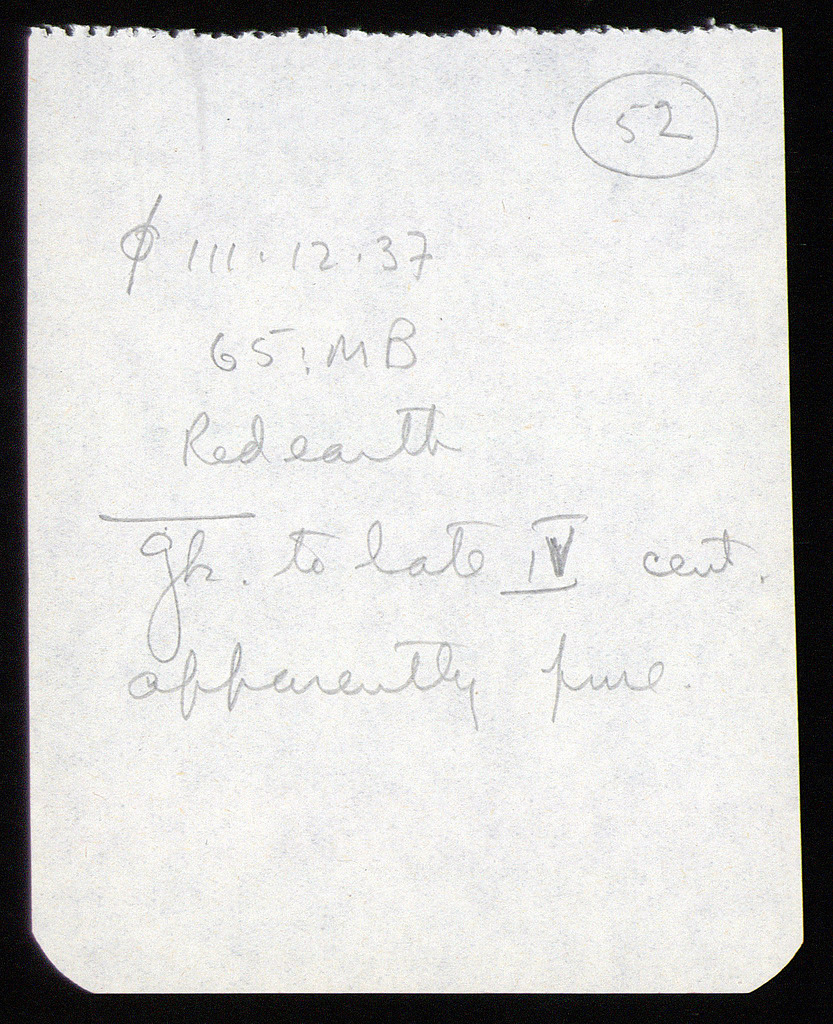 52
ϕ 111·12·37
65:MB
Red earth
gk. to late IV cent.
apparently pure.